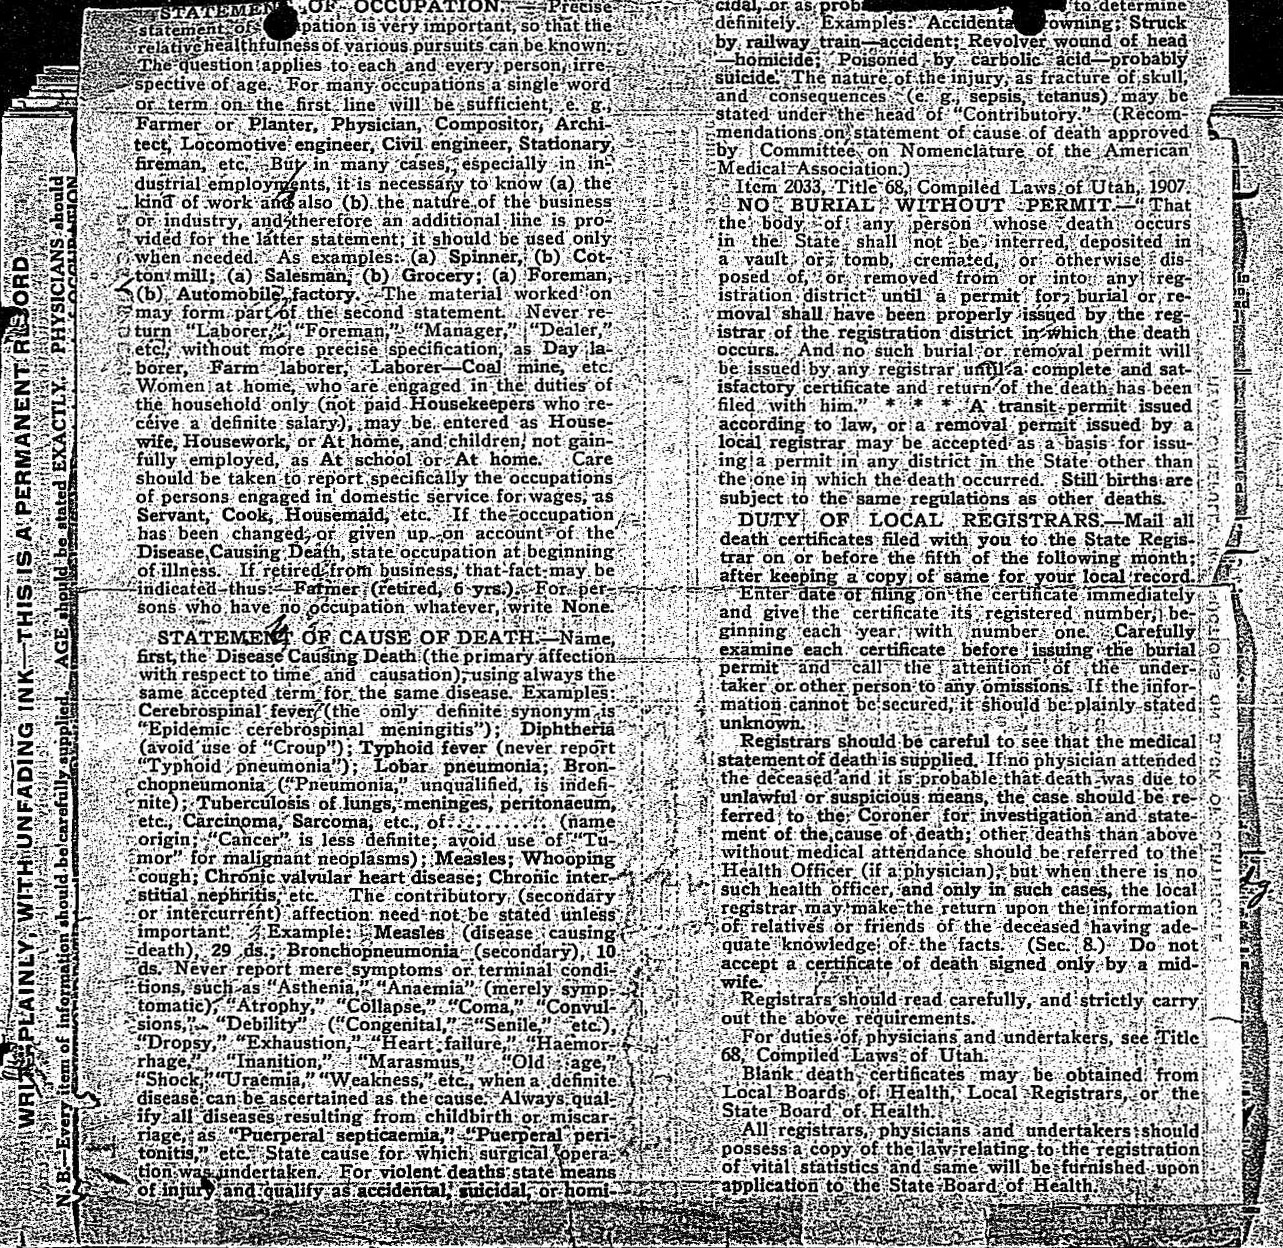 STATEMENT OF OCCUPATION.—Precise
statement of pation is very important, so that the
relative healthfulness of various pursuits can be known.
The question applies to each and every person, irre-
spective of age. For many occupations a single word
or term on the first line will be sufficient, e. g.,
Farmer or Planter, Physician, Compositor, Archi-
tect, Locomotive engineer, Civil engineer, Stationary,
fireman, etc. But in many cases, especially in in-
dustrial employments, it is necessary to know (a) the
kind of work and also (b) the nature of the business
or industry, and therefore an additional line is pro-
vided for the latter statement; it should be used only
when needed. As examples: (a) Spinner, (b) Cot-
ton mill; (a) Salesman, (b) Grocery; (a) Foreman,
(b) Automobile factory. The material worked on
may form part of the second statement. Never re-
turn "Laborer," "Foreman," "Manager," "Dealer,"
etc., without more precise specification, as Day la-
borer, Farm laborer, Laborer—Coal mine, etc.
Women at home, who are engaged in the duties of
the household only (not paid Housekeepers who re-
ceive a definite salary), may be entered as House-
wife, Housework, or At home, and children, not gain-
fully employed, as At school or At home. Care
should be taken to report specifically the occupations
of persons engaged in domestic service for wages, as
Servant, Cook, Housemaid, etc. If the occupation
has been changed or given up on account of the
Disease Causing Death, state occupation at beginning
of illness. If retired from business, that fact may be
indicated thus: Farmer (retired, 6 yrs.). For per-
sons who have no occupation whatever, write None.
STATEMENT OF CAUSE OF DEATH.—Name,
first, the Disease Causing Death (the primary affection
with respect to time and causation), using always the
same accepted term for the same disease. Examples:
Cerebrospinal fever (the only definite synonym is
"Epidemic cerebrospinal meningitis"); Diphtheria
(avoid use of "Croup"); Typhoid fever (never report
"Typhoid pneumonia"); Lobar pneumonia; Bron-
chopneumonia ("Pneumonia," unqualified, is indefi-
nite); Tuberculosis of lungs, meninges, peritonaeum,
etc., Carcinoma, Sarcoma, etc., of .......... (name
origin; "Cancer" is less definite; avoid use of "Tu-
mor" for malignant neoplasms); Measles; Whooping
cough; Chronic valvular heart disease; Chronic inter-
stitial nephritis, etc. The contributory (secondary
or intercurrent) affection need not be stated unless
important. Example: Measles (disease causing
death), 29 ds.; Bronchopneumonia (secondary), 10
ds. Never report mere symptoms or terminal condi-
tions, such as "Asthenia," "Anaemia" (merely symp-
tomatic), "Atrophy," "Collapse," "Coma," "Convul-
sions," "Debility" ("Congenital," "Senile," etc.),
"Dropsy," "Exhaustion," "Heart failure," "Haemor-
rhage," "Inanition," "Marasmus," "Old age,"
"Shock," "Uraemia," "Weakness," etc., when a definite
disease can be ascertained as the cause. Always qual-
ify all diseases resulting from childbirth or miscar-
riage, as "Puerperal septicaemia," "Puerperal peri-
tonitis," etc. State cause for which surgical opera-
tion was undertaken. For violent deaths state means
of injury and qualify as accidental, suicidal, or homi-
cidal, or as prob to determine
definitely. Examples: Accidental owning; Struck
by railway train—accident; Revolver wound of head
—homicide; Poisoned by carbolic acid—probably
suicide. The nature of the injury, as fracture of skull,
and consequences (e. g., sepsis, tetanus) may be
stated under the head of "Contributory." (Recom-
mendations on statement of cause of death approved
by Committee on Nomenclature of the American
Medical Association.)
Item 2033, Title 68, Compiled Laws of Utah, 1907.
NO BURIAL WITHOUT PERMIT.—"That
the body of any person whose death occurs
in the State shall not be interred, deposited in
a vault or tomb, cremated, or otherwise dis-
posed of, or removed from or into any reg-
istration district until a permit for burial or re-
moval shall have been properly issued by the reg-
istrar of the registration district in which the death
occurs. And no such burial or removal permit will
be issued by any registrar until a complete and sat-
isfactory certificate and return of the death has been
filed with him." * * * A transit permit issued
according to law, or a removal permit issued by a
local registrar may be accepted as a basis for issu-
ing a permit in any district in the State other than
the one in which the death occurred. Still births are
subject to the same regulations as other deaths.
DUTY OF LOCAL REGISTRARS.—Mail all
death certificates filed with you to the State Regis-
trar on or before the fifth of the following month;
after keeping a copy of same for your local record.
Enter date of filing on the certificate immediately
and give the certificate its registered number, be-
ginning each year with number one. Carefully
examine each certificate before issuing the burial
permit and call the attention of the under-
taker or other person to any omissions. If the infor-
mation cannot be secured, it should be plainly stated
unknown.
Registrars should be careful to see that the medical
statement of death is supplied. If no physician attended
the deceased and it is probable that death was due to
unlawful or suspicious means, the case should be re-
ferred to the Coroner for investigation and state-
ment of the cause of death; other deaths than above
without medical attendance should be referred to the
Health Officer (if a physician), but when there is no
such health officer, and only in such cases, the local
registrar may make the return upon the information
of relatives or friends of the deceased having ade-
quate knowledge of the facts. (Sec. 8.) Do not
accept a certificate of death signed only by a mid-
wife.
Registrars should read carefully, and strictly carry
out the above requirements.
For duties of physicians and undertakers, see Title
68, Compiled Laws of Utah.
Blank death certificates may be obtained from
Local Boards of Health, Local Registrars, or the
State Board of Health.
All registrars, physicians and undertakers should
possess a copy of the law relating to the registration
of vital statistics and same will be furnished upon
application to the State Board of Health.
WRITE PLAINLY, WITH UNFADING INK—THIS IS A PERMANENT RECORD
N. B.—Every item of information should be carefully supplied. AGE should be stated EXACTLY. PHYSICIANS should